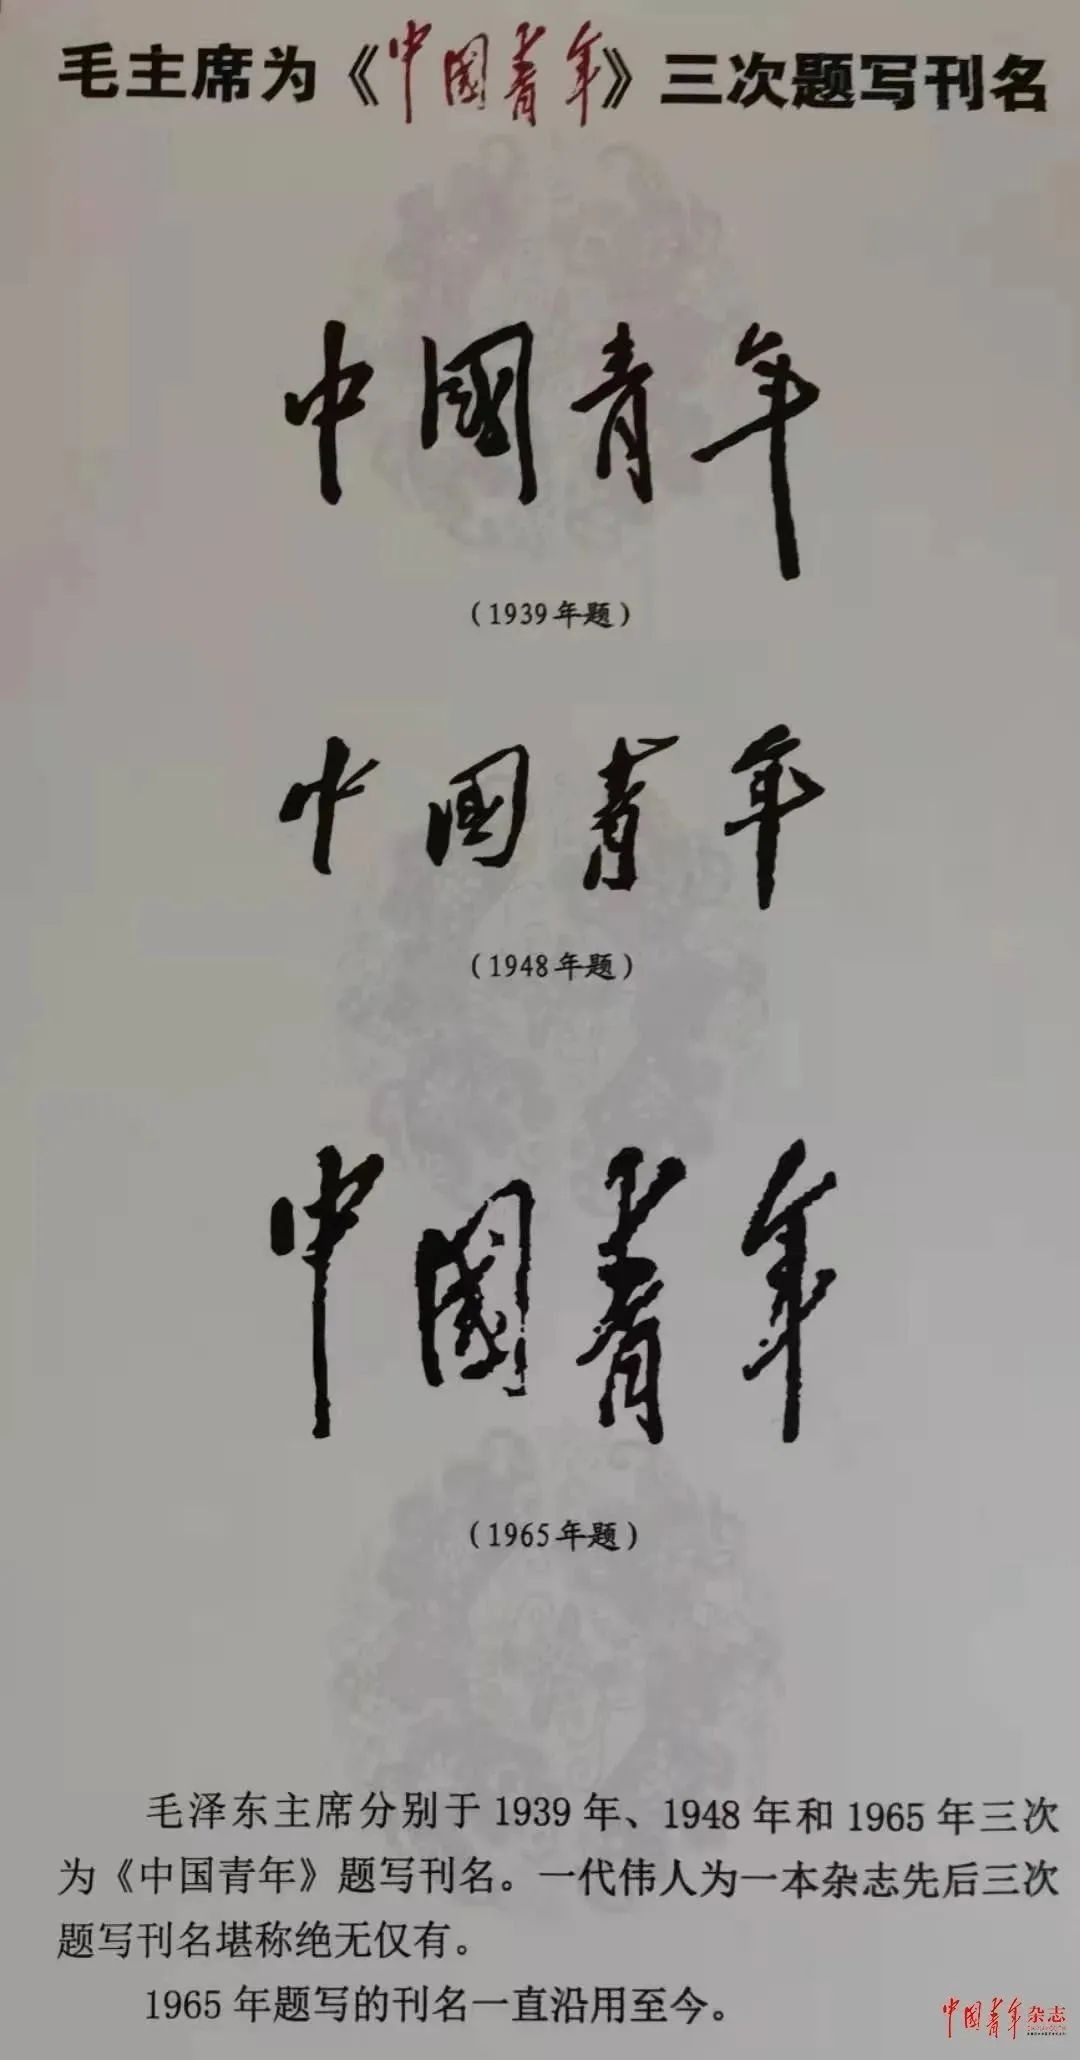 毛主席为《中國青年》三次题写刊名
中國青年
（1939年题）
中国青年
（1948年题）
中國青年
（1965年题）
毛泽东主席分别于1939年、1948年和1965年三次
为《中国青年》题写刊名。一代伟人为一本杂志先后三次
题写刊名堪称绝无仅有。
1965年题写的刊名一直沿用至今。
中國青年杂志